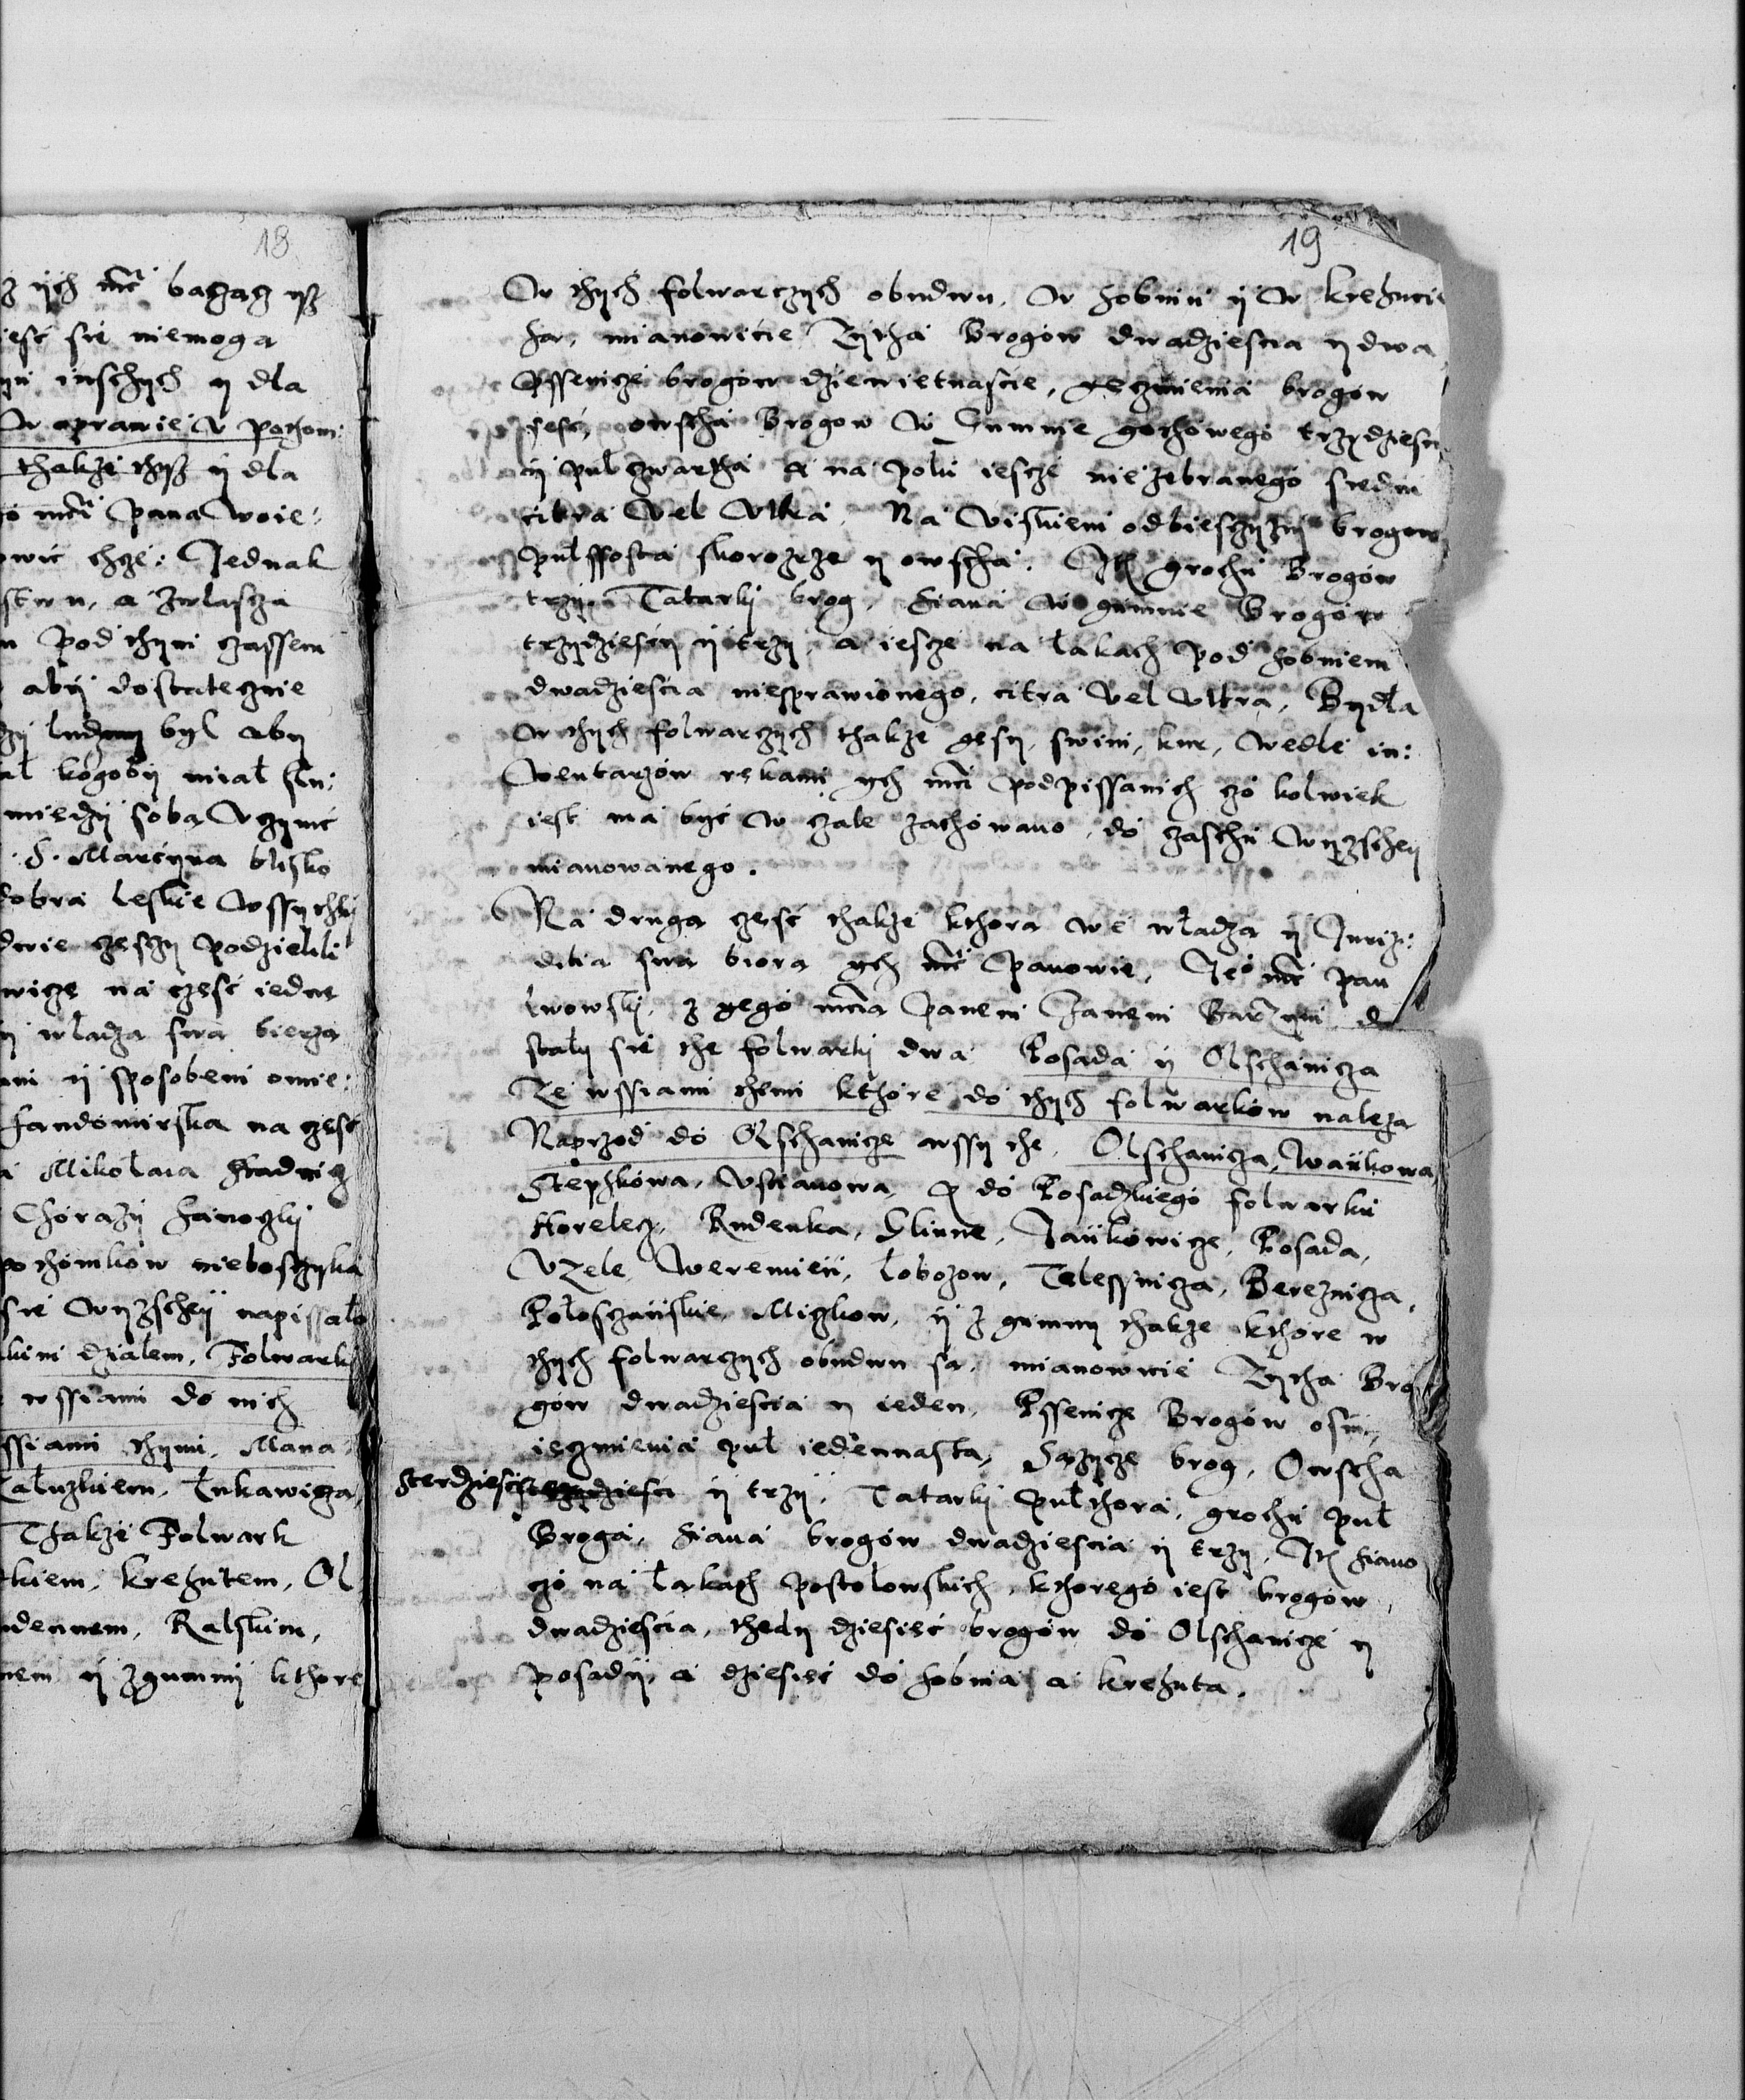 18
z ych mći bagag ysz
iesć sie niemoga
inschych y dla
W oprawie w pothom:
thakże thysz y dla
mći Pana Woie:
owic chcze: Jednak
stwu, a zwlascza
Pod thym czassem
aby dostatecznie
ludzmy byl aby
kogoby mial
miedzy soba Vczynić
S. Marcyna blisko
dobra leskie Wssythky
dwie czesczy podzielili
wicze na czesć iedne
y wladza swa bierza
y sposobem omie:
sandomirska na czesć
Mikolaia Stadnicz
Chorazy sanogky
pothomkow nieboszczyka
sie Wyzschey napissalo
dzialem, Folwarky
wssiami do nich
wssiami thymi, Mana
Lukawicza,
Thakże Folwark
krehutem, Ol
Ralskim,
y z gumny kthore
19
W thych folwarczych obudwu, W hobniu y W krehucie
sa, mianowicie Zytha Brogow dwadziescia y dwa
Pssenicze brogow dziewietnascie, yeczmienia brogow
sesć, owscha Brogow W Gumnie gothowego trzydziesci
y pul czwartha a na polu iescze niezebranego siedm
citra vel vltra. Na Viskiem odbiesczyzny brogow
pulssosta skorozrze y owscha. It grochu Brogow
trzy. Tatarky brog, siana W gumnie Brogow
trzydziesci y trzy, a iescze na lakach pod hobniem
dwadziescia niesprawionego, citra vel vltra, Bydla
W thych folwarczych thakże gesy, swini, kur, Wedle in:
Wentarzow rekami ych mći podpissanich czo kolwiek
iest ma być W czale zachowano, do czaschu Wyzschey
mianowanego.
Na druga czesć thakże kthora we wladza y Juriz:
ditia swa biora ych mći Panowie, Jeo mć pan
lwowsky, z yego mcia Panem Janem Barzym do
staly sie the folwarky dwa Posada y Olschanicza
Ze wssiami themi kthore do thych folwarkow naleza
Naprzod do Olschanicze wssy the, Olschanicza, Wańkowa
Stephkowa, Vstianowa, do Posadzkiego folwarku
Horelecz, Rudenka, Glinne, Jańkowicze, Posada,
Vzele Weremień, Lobozow, Telessnicza, Berezniga,
Poloszańskie Miczkow, y z gumny thakże kthore w
thych folwarczych obudwu sa, mianowicie Zytha Bro
gow dwadziescia y ieden, Pssenicze Brogow osm,
ieczmienia pul iedennasta, Sazycze brog, Owscha
Sterdziesci y trzy, Tatarky pulthora, grochu pul
Broga, siana brogow dwadziescia y trzy, It siano
czo na lakach postolowskich, kthorego iest brogow
dwadziescia, thedy dziesieć brogow do Olschanicze y
posady, a dziesieć do hobnia a krehuta.